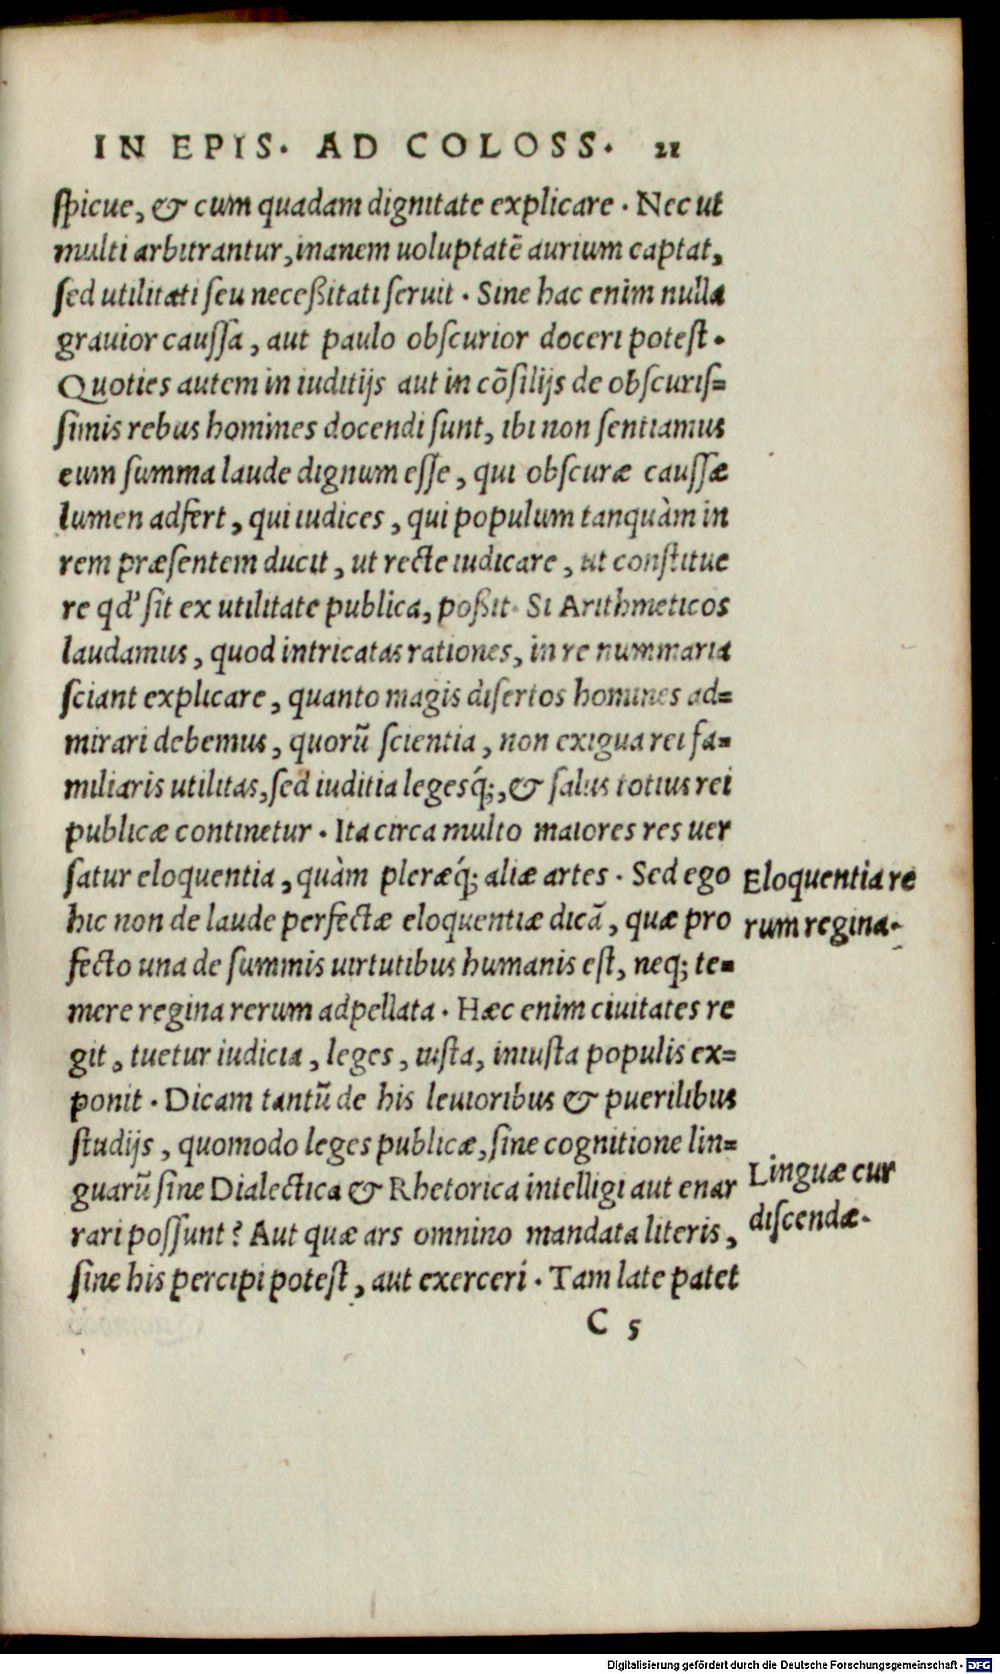 IN EPIS. AD COLOSS. 21
spicue, & cum quadam dignitate explicare. Nec ut
multi arbitrantur, inanem uoluptatē aurium captat,
sed utilitati seu neceßitati seruit. Sine hac enim nulla
grauior caussa, aut paulo obscurior doceri potest.
Quoties autem in iuditijs aut in cōsilijs de obscuris=
simis rebus homines docendi sunt, ibi non sentiamus
eum summa laude dignum esse, qui obscuræ caussæ
lumen adfert, qui iudices, qui populum tanquàm in
rem præsentem ducit, ut recte iudicare, ut constitue
re qd' sit ex utilitate publica, poßit. Si Arithmeticos
laudamus, quod intricatas rationes, in re nummaria
sciant explicare, quanto magis disertos homines ad=
mirari debemus, quorū scientia, non exigua rei fa=
miliaris utilitas, sed iuditia legesq́;, & salus totius rei
publicæ continetur. Ita circa multo maiores res uer
satur eloquentia, quàm pleræq́; aliæ artes. Sed ego
hic non de laude perfectæ eloquentiæ dicā, quæ pro
fecto una de summis uirtutibus humanis est, neq; te=
mere regina rerum adpellata. Hæc enim ciuitates re
git, tuetur iudicia, leges, iusta, iniusta populis ex=
ponit. Dicam tantū de his leuioribus & puerilibus
studijs, quomodo leges publicæ, sine cognitione lin=
guarū sine Dialectica & Rhetorica intelligi aut enar
rari possunt? Aut quæ ars omnino mandata literis,
sine his percipi potest, aut exerceri. Tam late patet
C 5
Eloquentia re
rum regina.
Linguæ cur
discendæ.
Digitalisierung gefördert durch die Deutsche Forschungsgemeinschaft - DFG